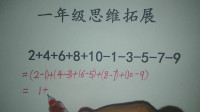 一年级思维拓展
2+4+6+8+10-1-3-5-7-9
=(2-1)+(4-3)+(6-5)+(8-7)+(10-9)
= 1+